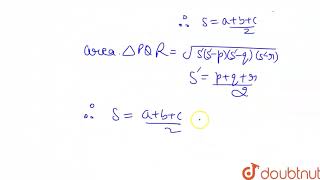 ∴ S = a+b+c/2
area. △PQR = √S'(S'-p)(S'-q)(S'-r)
S' = p+q+r/2
∴ S = a+b+c/2
doubtnut